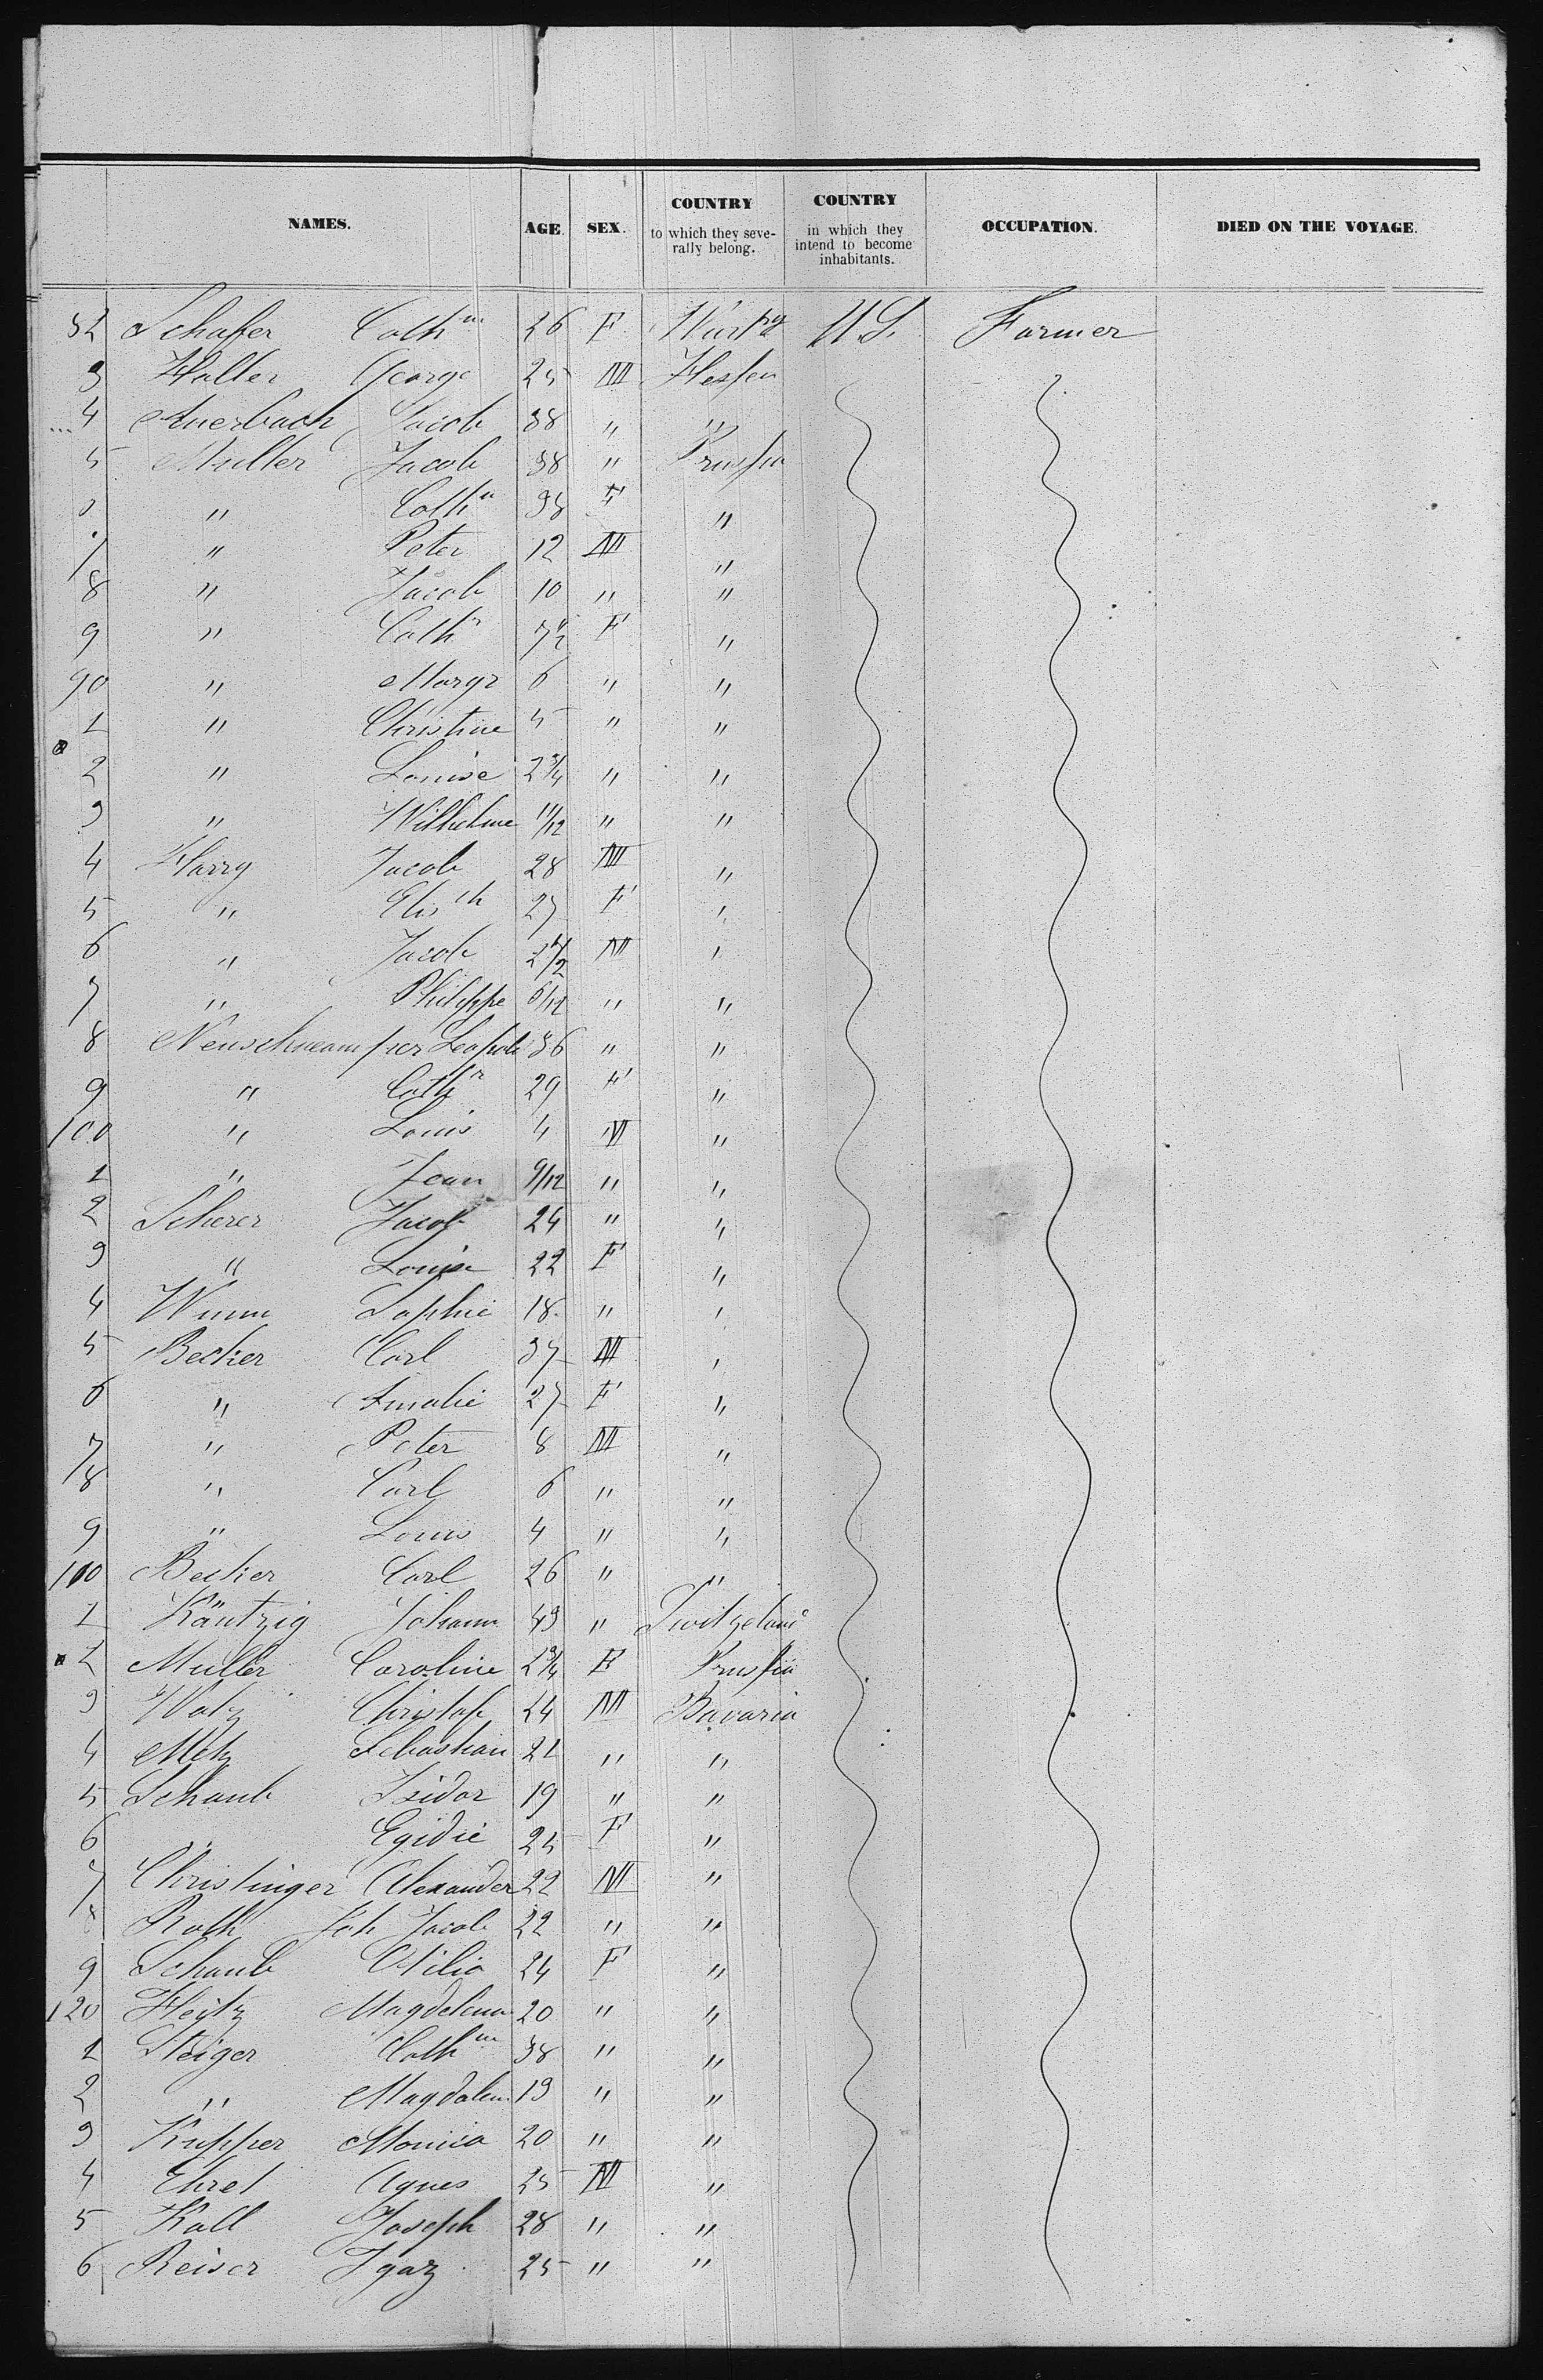 NAMES. AGE. SEX. COUNTRY to which they severally belong. COUNTRY in which they intend to become inhabitants. OCCUPATION. DIED ON THE VOYAGE.
82 Schafer Cathne 26 F Wurtbg U.S. Farmer
3 Haller George 25 M Hessen
4 Auerbach Jacob 38 " "
5 Muller Jacob 38 " Prussia
6 " Cathn 38 F "
7 " Peter 12 M "
8 " Jacob 10 " "
9 " Cathr 7 1/2 F "
90 " Margr 6 " "
1 " Christine 5 " "
2 " Louise 2 3/4 " "
3 " Wilhelme 11/12 " "
4 Harry Jacob 28 M "
5 " Elisth 27 F "
6 " Jacob 2 1/2 M "
7 " Philippe 6/12 " "
8 Neuschwamper Leopold 36 " "
9 " Cathr 29 F "
100 " Louis 4 M "
1 " Jean 9/12 " "
2 Scherer Jacob 24 " "
3 " Louise 22 F "
4 Wumm Sophie 18 " "
5 Becker Carl 37 M "
6 " Amalie 27 F "
7 " Peter 8 M "
8 " Carl 6 " "
9 " Louis 4 " "
110 Becker Carl 26 " "
1 Käntzig Johann 43 " Switzeland
2 Muller Caroline 2 3/4 F Prussia
3 Watz Christoph 24 M Bavaria
4 Metz Sebastian 21 " "
5 Schaub Isidor 19 " "
6 " Egidie 25 F "
7 Christinger Alexander 22 M "
8 Roth Joh Jacob 22 " "
9 Schaub Otilia 24 F "
120 Heitz Magdelena 20 " "
1 Steiger Cathne 38 " "
2 " Magdalen 19 " "
3 Kupper Monica 20 " "
4 Ehret Agnes 25 M "
5 Kall Joseph 28 " "
6 Reiser Igaz 25 " "